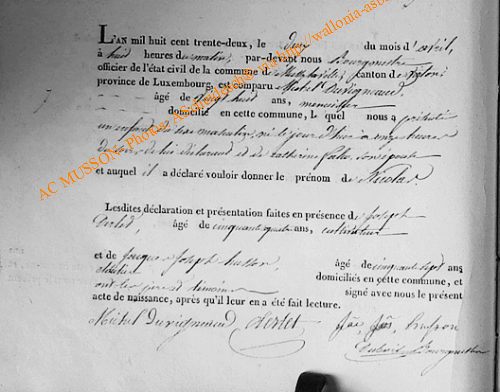 L'AN mil huit cent trente-deux, le deux du mois d'avril,
à huit heures du matin, par-devant nous Bourgmestre
officier de l'état civil de la commune de canton de
province de Luxembourg, est comparu Michel Duvigneaud
âgé de vingt huit ans, menuisier
domicilié en cette commune, Lequel nous a présenté
un enfant du sexe masculin, né le jour d'hier à onze heures
de lui déclarant et de Catherine son épouse
et auquel il a déclaré vouloir donner le prénom de Nicolas.
Lesdites déclaration et présentation faites en présence de Joseph
âgé de cinquante quatre ans, cultivateur
et de Jacques Joseph husson, âgé de cinquante sept ans
domiciliés en cette commune, et
ont les père et témoins signé avec nous le présent
acte de naissance, après qu'il leur en a été fait lecture.
Michel Duvigneaud
Bourgmestre
AC MUSSON Photos: http://wallonia-asb